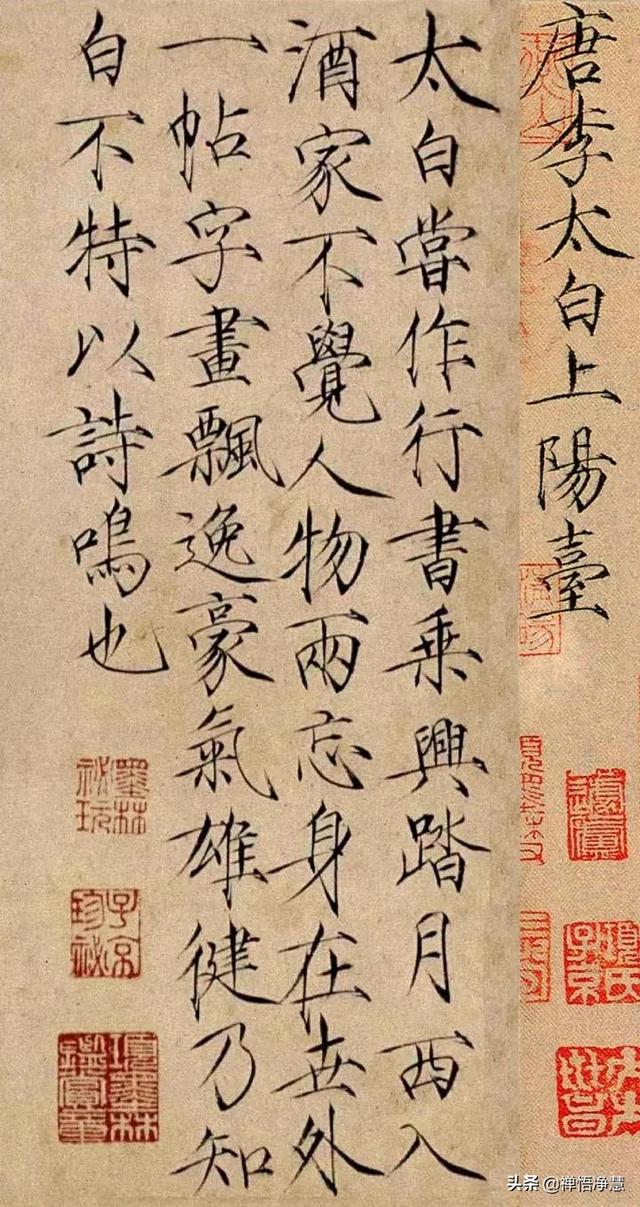 唐李太白上陽臺
太白嘗作行書乘興踏月西入
酒家不覺人物兩忘身在世外
一帖字畫飄逸豪氣雄徤乃知
白不特以詩鳴也
墨林
祕玩
子京
珍祕
項墨林
鑑賞章
項氏
子京
头条 @禅悟净慧